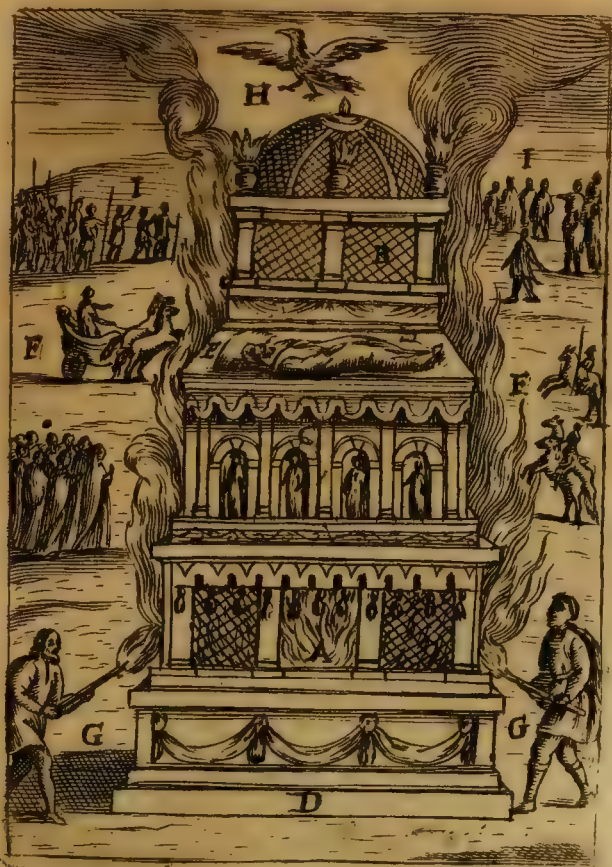 H
I I
B
F E
F
C
A
G G
D